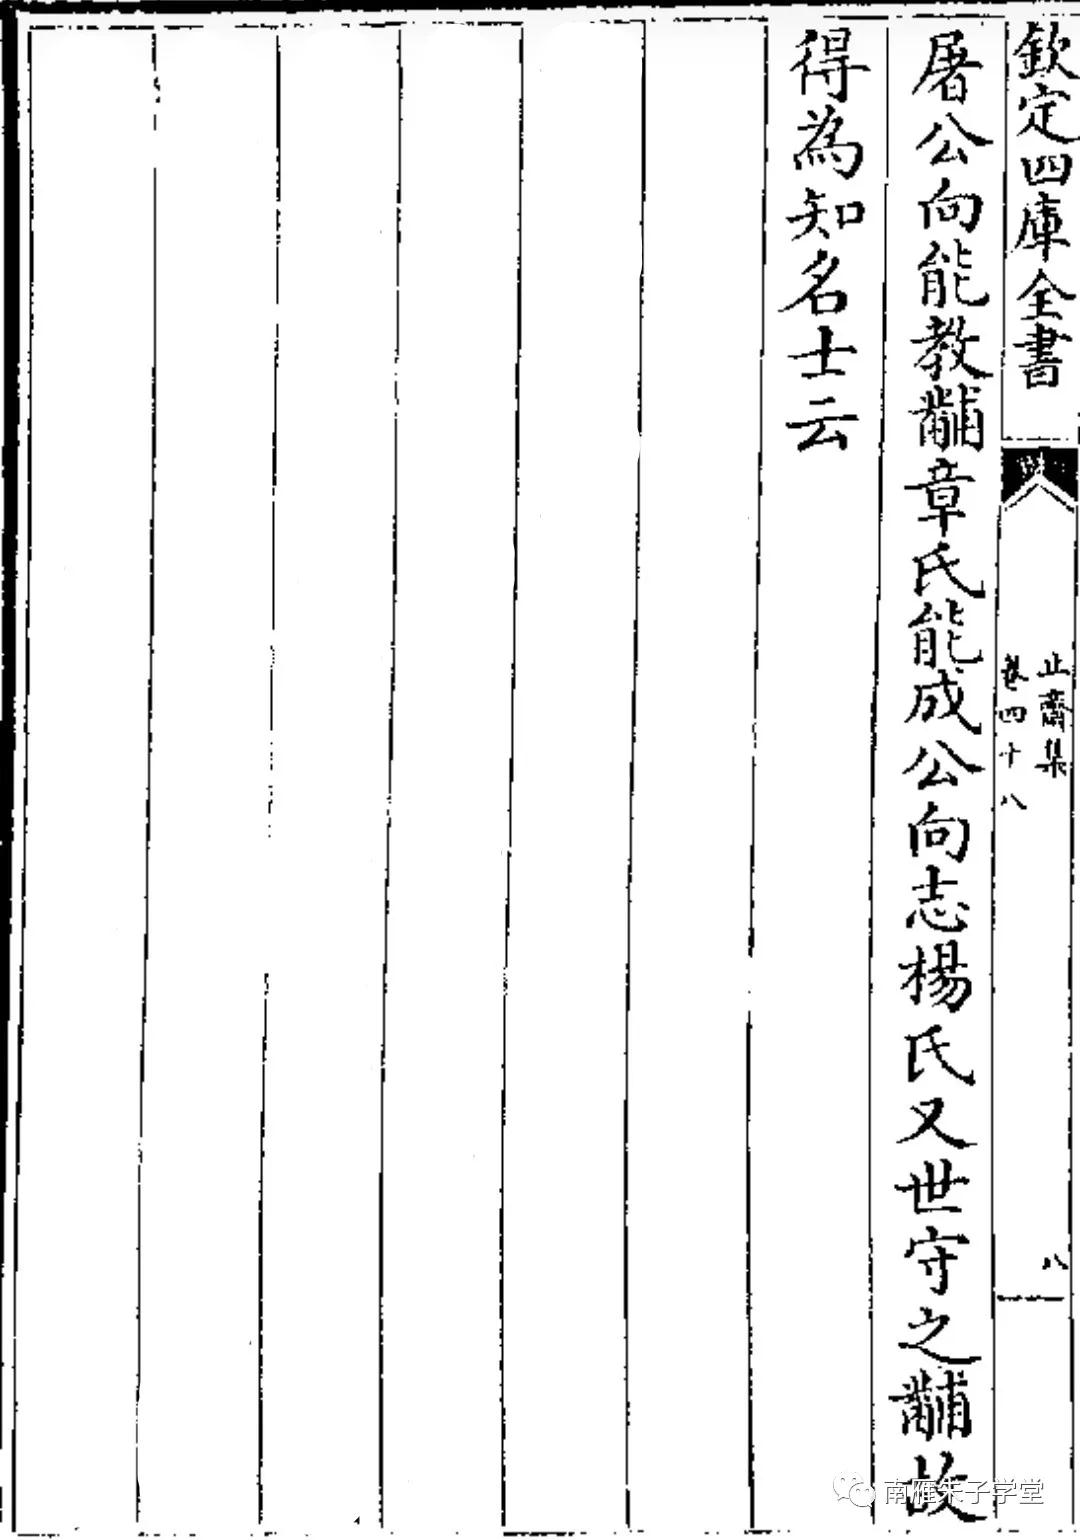 欽定四庫全書
止齋集
卷四十八
八
屠公向能教黼章氏能成公向志楊氏又世守之黼故
得為知名士云
南雁朱子学堂